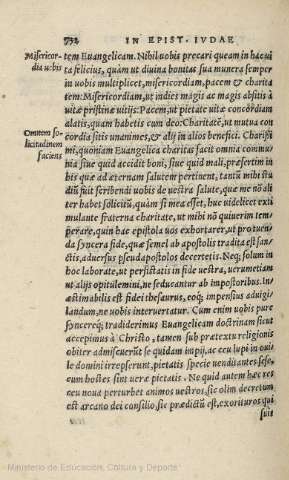 732 IN EPIST. IVDAE
Misericordia uobis
tem Euangelicam. Nihil uobis precari queam in hac ui
ta felicius, quàm ut diuina bonitas sua munera semper
in uobis multiplicet, misericordiam, pacem & charita
tem: Misericordiam, ut indies magis ac magis absitis à
uitæ pristinæ uitijs: Pacem, ut pietate uitæ concordiam
alatis, quam habetis cum deo: Charitatẽ, ut mutua con
cordia sitis unanimes, & alij in alios benefici. Charissi
Omnem so-
licitudinem
faciens
mi, quoniam Euangelica charitas facit omnia commu
nia siue quid accidit boni, siue quid mali, præsertim in
bis quæ ad æternam salutem pertinent, tanti mihi stu
dij fuit scribendi uobis de uestra salute, quæ me nõ ali
ter habet solicitũ, quàm si mea esset, huc uidelicet exti
mulante fraterna charitate, ut mihi nõ quiuerim tem
perare, quin hac epistola uos exhortarer, ut pro tuen
da syncera fide, quæ semel ab apostolis tradita est san-
ctis, aduersus pseudapostolos decertetis. Neq; solum in
hoc laborate, ut persistatis in fide uestra, uerumetiam
ut alijs opitulemini, ne seducantur ab impostoribus. In
æstimabilis est fidei thesaurus, eoq; impensius aduigi/
landum, ne uobis interuertatur. Cum enim uobis pure
syncereq; tradiderimus Euangelicam doctrinam sicut
accepimus à Christo, tamen sub prætextu religionis
obiter admiscuerũt se quidam impij, ac ceu lupi in ouile
domini irrepserunt, pietatis specie uenditantes sese,
cum hostes sint ueræ pietatis. Ne quid autem hæc res
noua perturbet animos uestros, sic olim decretum
est arcano dei consilio, sic prædictũ est, exorituros qui
suis
Ministerio de Educación, Cultura y Deporte